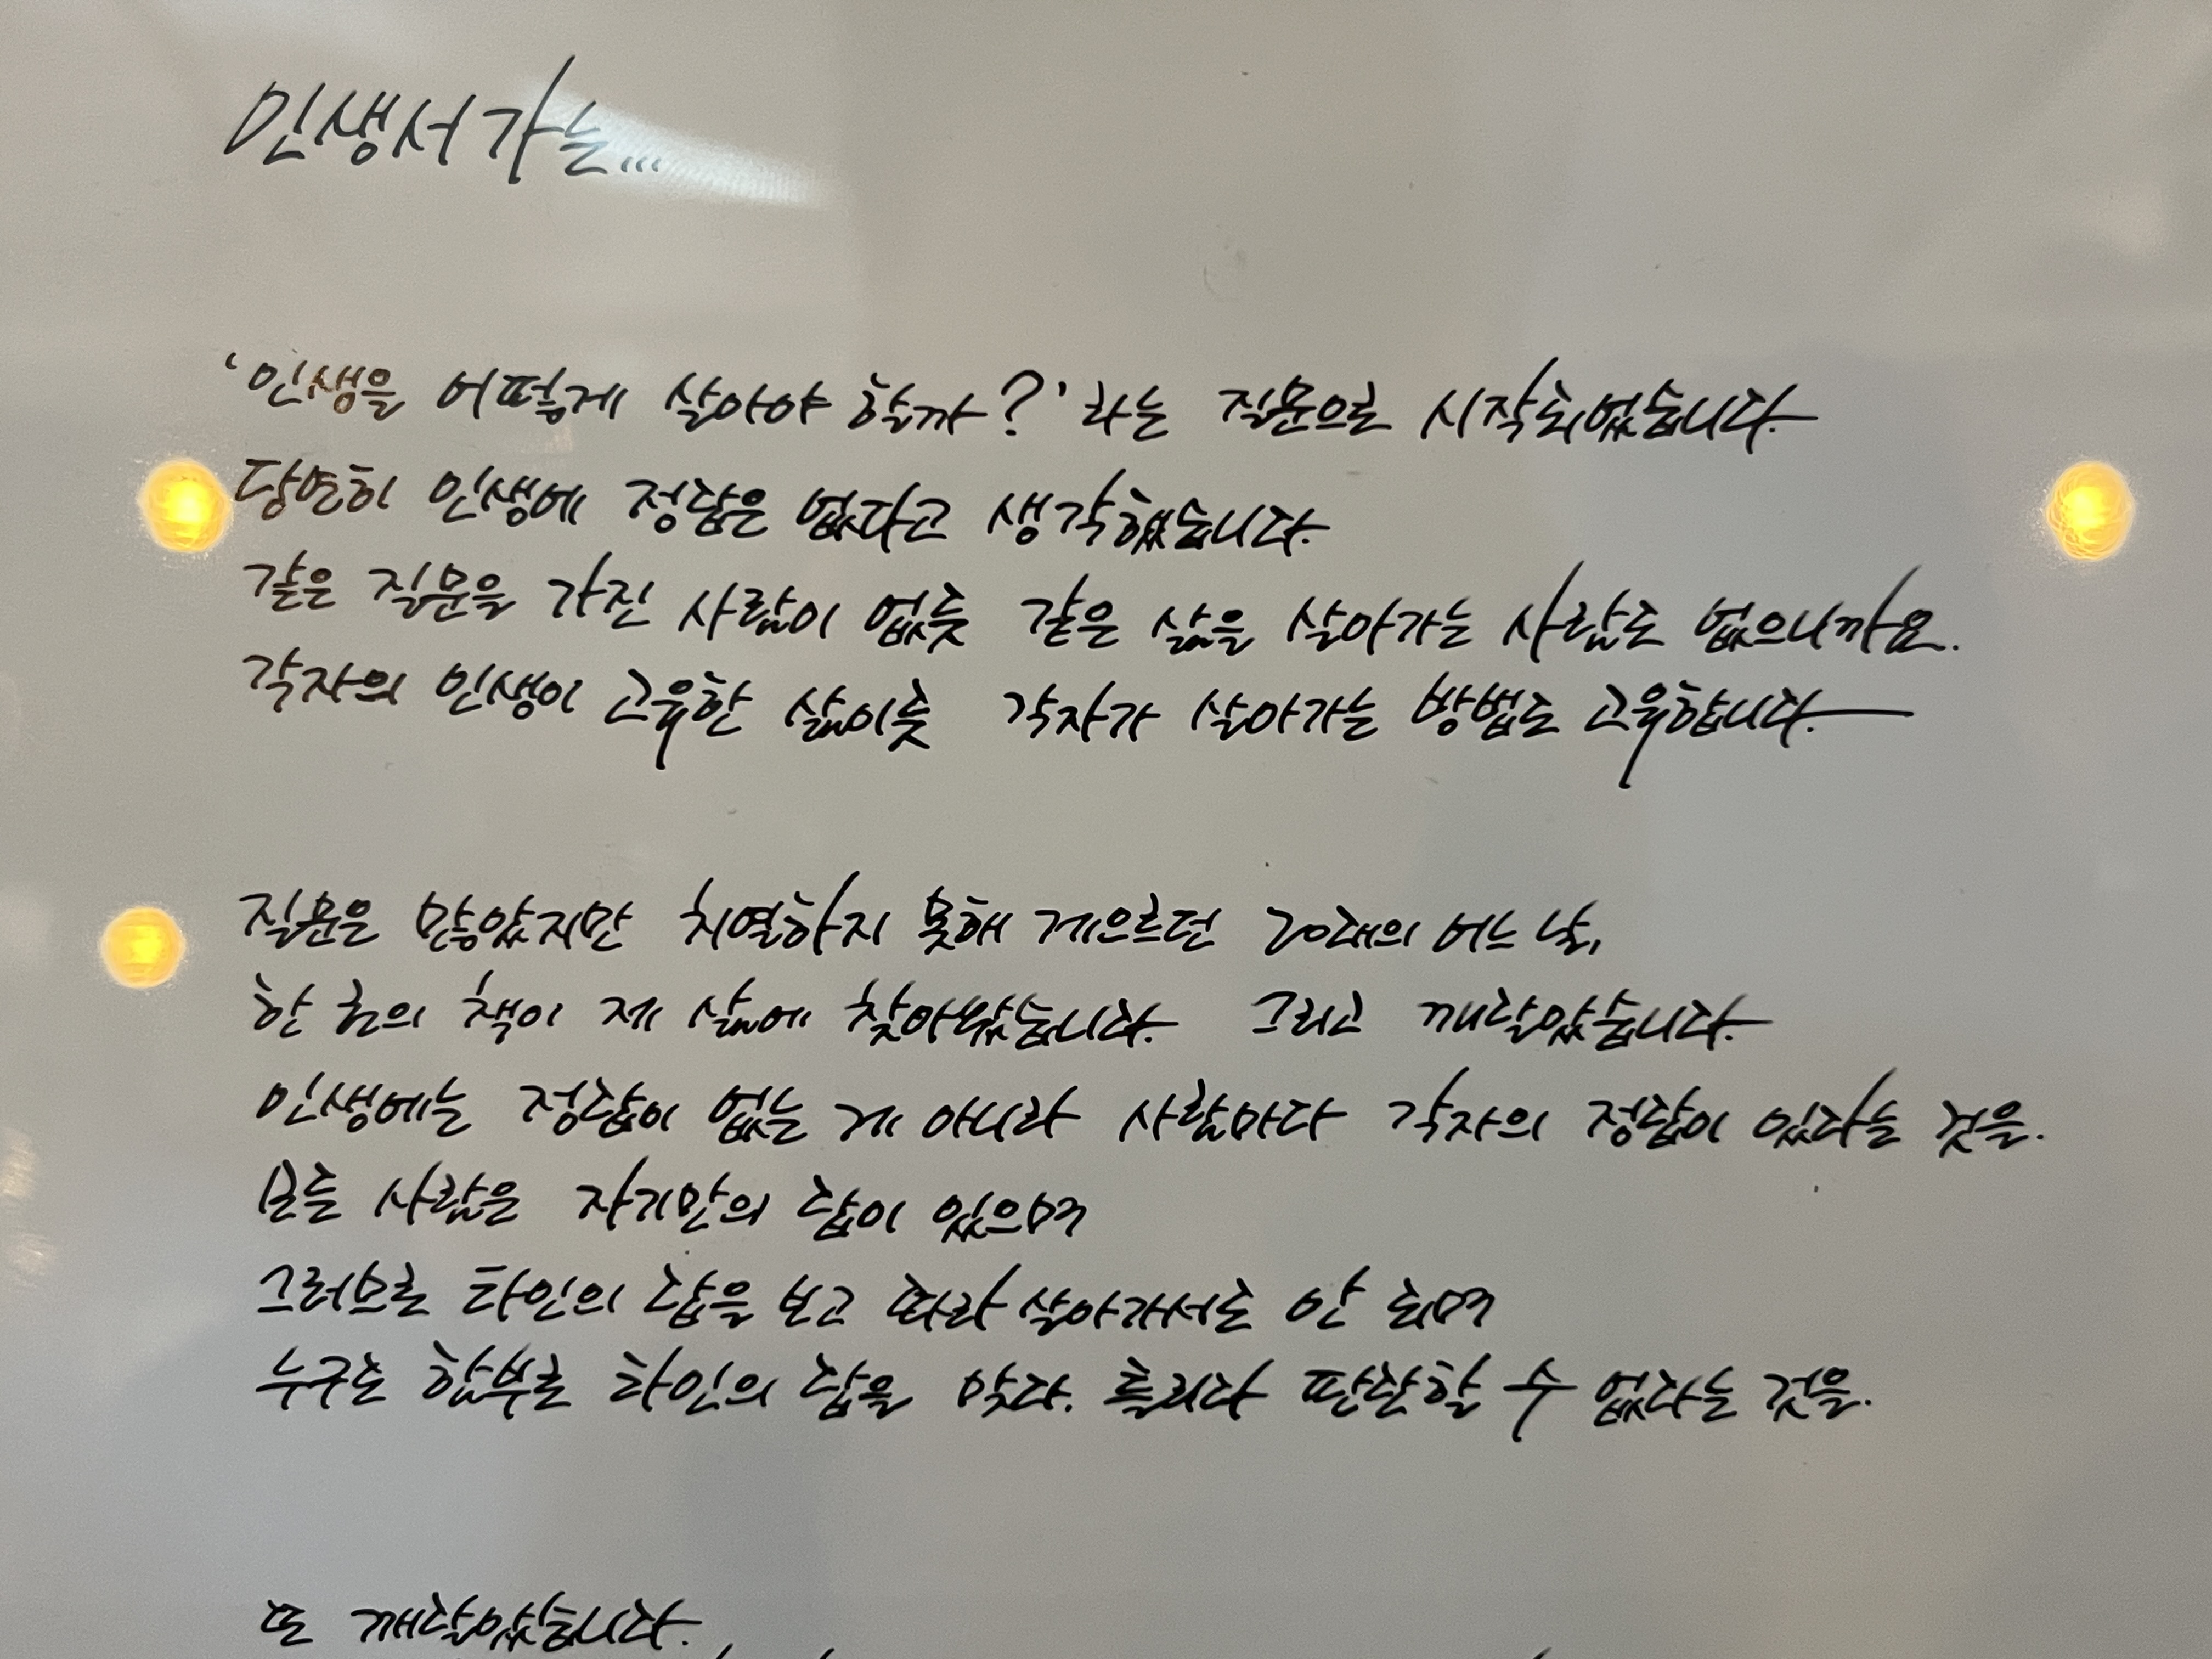 인생서가는...
'인생을 어떻게 살아야 할까?'라는 질문으로 시작되었습니다.
당연히 인생에 정답은 없다고 생각했습니다.
같은 질문을 가진 사람이 없듯 같은 삶을 살아가는 사람도 없으니까요.
각자의 인생이 고유한 삶이듯 각자가 살아가는 방법도 고유합니다.
질문은 많았지만 치열하지 못해 게으르던 20대의 어느 날,
한 권의 책이 제 삶에 찾아왔습니다. 그리고 깨달았습니다.
인생에는 정답이 없는 게 아니라 사람마다 각자의 정답이 있다는 것을.
모든 사람은 자기만의 답이 있으며
그러므로 타인의 답을 보고 따라 살아가서도 안 되며
누구도 함부로 타인의 답을 맞다. 틀리다 판단할 수 없다는 것을.
또 깨달았습니다.